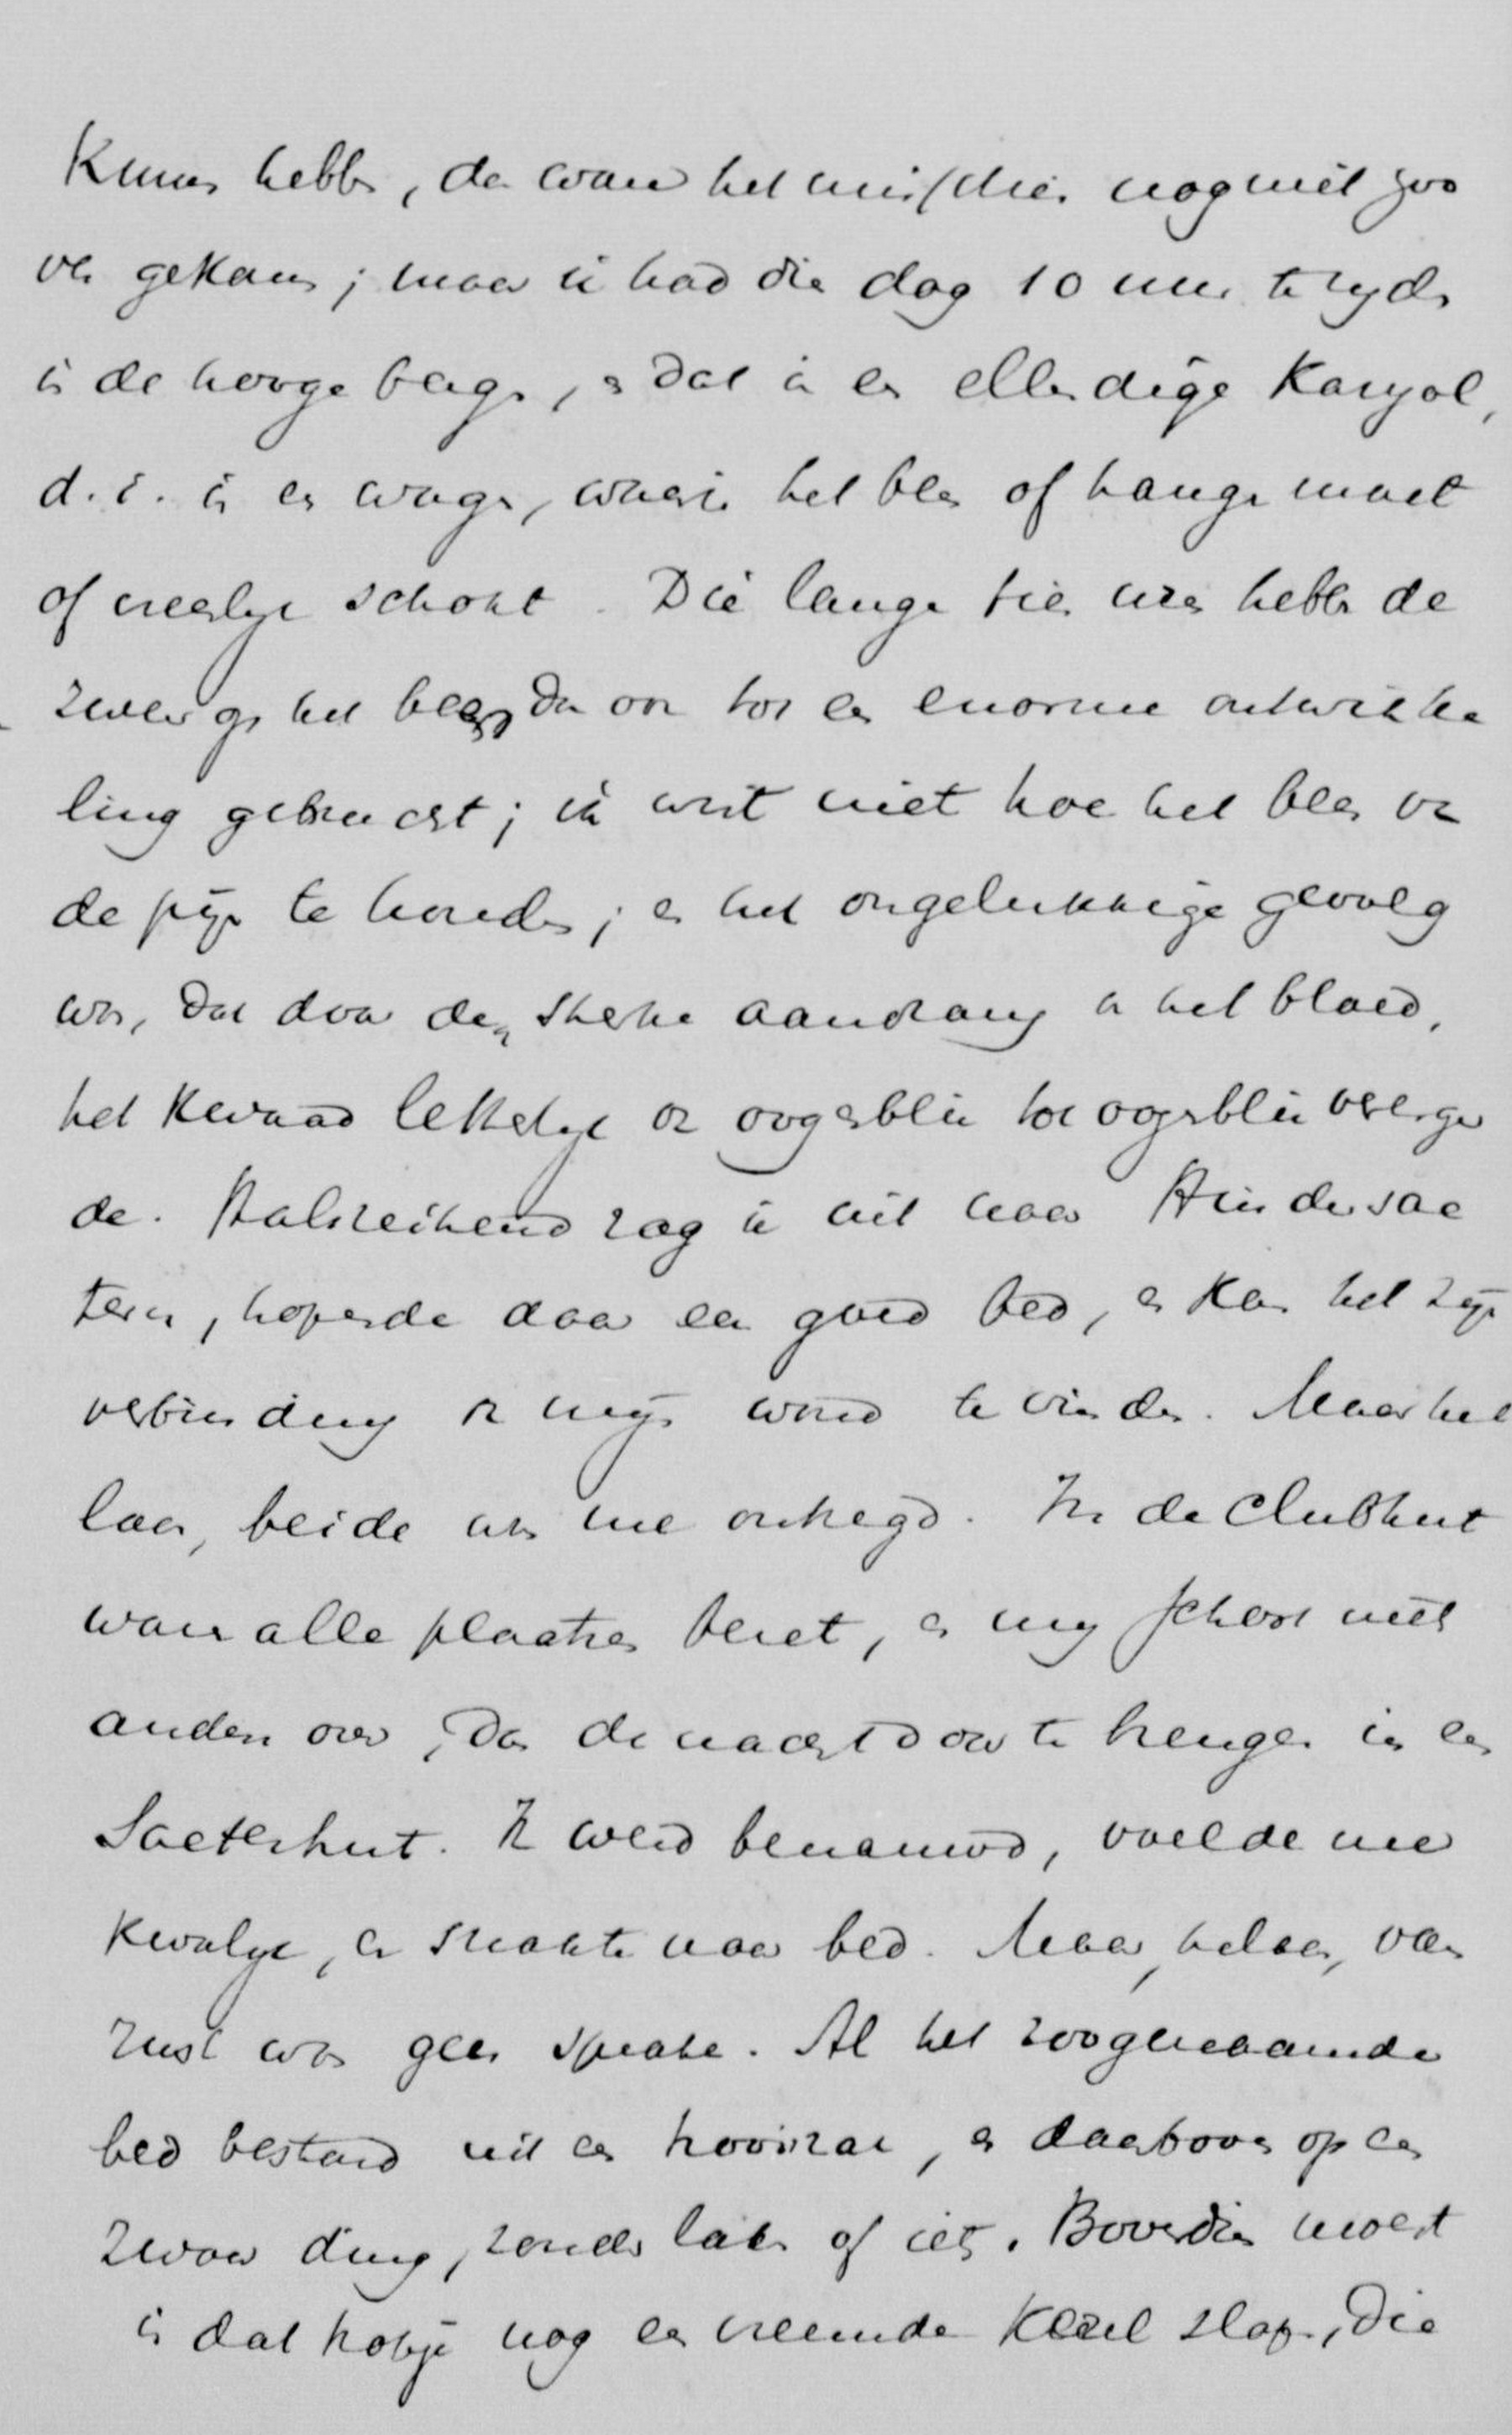 kunnen hebben, dan ware het misschien nog niet zoo
ver gekomen; maar ik had die dag 10 uur te ryden
in de hooge bergen, en dat in een ellendige karyol,
d.i. in een wagen, waarin het been of hangen moet
of vreeslyk schokt. Die lange tien uren hebben de
zweer op het been dan ook tot een enorme ontwikke
ling gebracht; ik wist niet hoe het been van
de pyn te houden; en het ongelukkige gevolg
was, dat door den sterke aandrang van het bloed,
het kwaad letterlyk van oogenblik tot oogenblik vererger
de. Halsreikend zag ik uit naar Hindersae
tern, hopende daar een goed bed, en kan het zyn
verbinding van myn wond te vinden. Maar he
laas, beide was me ontzegd. In de Clubhut
waren alle plaatsen bezet, en my schoot niet
anders over, dan de nacht door te brengen in een
Saeterhut. Ik werd benauwd, voelde me
kwalyk, en snakte naar bed. Maar, helaas, van
rust was geen sprake. Al het zoogenaamde
bed bestond uit een hooizak, en daarboven op een
zwaar ding, zonder laken of iets. Bovendien moest
in dat hokje nog een vreemde kerel slapen, die